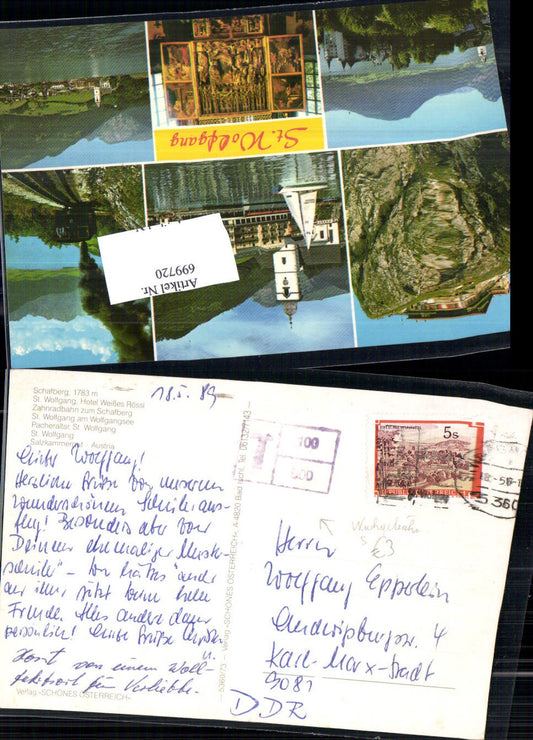 St. Wolfgang
Artikel Nr.
699720
18.5.89
Schafberg, 1783 m
St. Wolfgang, Hotel Weißes Rössl
Zahnradbahn zum Schafberg
St. Wolfgang am Wolfgangsee
Pacheraltar, St. Wolfgang
St. Wolfgang
Salzkammergut Austria
Lieber Wolfgang!
Herzliche Grüße von unserem
wunderschönen Schüleraus-
flug! Besonders aber von
Deinem ehemaligen
schüler -
Freude. Alles andere dann
persönlich! Liebe Grüße
Horst von einem
für Verliebte.
Verlag »SCHÖNES ÖSTERREICH«
5360/73 Verlag »SCHÖNES ÖSTERREICH«, A-4820 Bad Ischl, Tel.
T
100
600
5s
REPUBLIK ÖSTERREICH
5360
Herrn
Wolfgang Epperlein
Ludwigsburgstr. 4
Karl-Marx-Stadt
9081
DDR